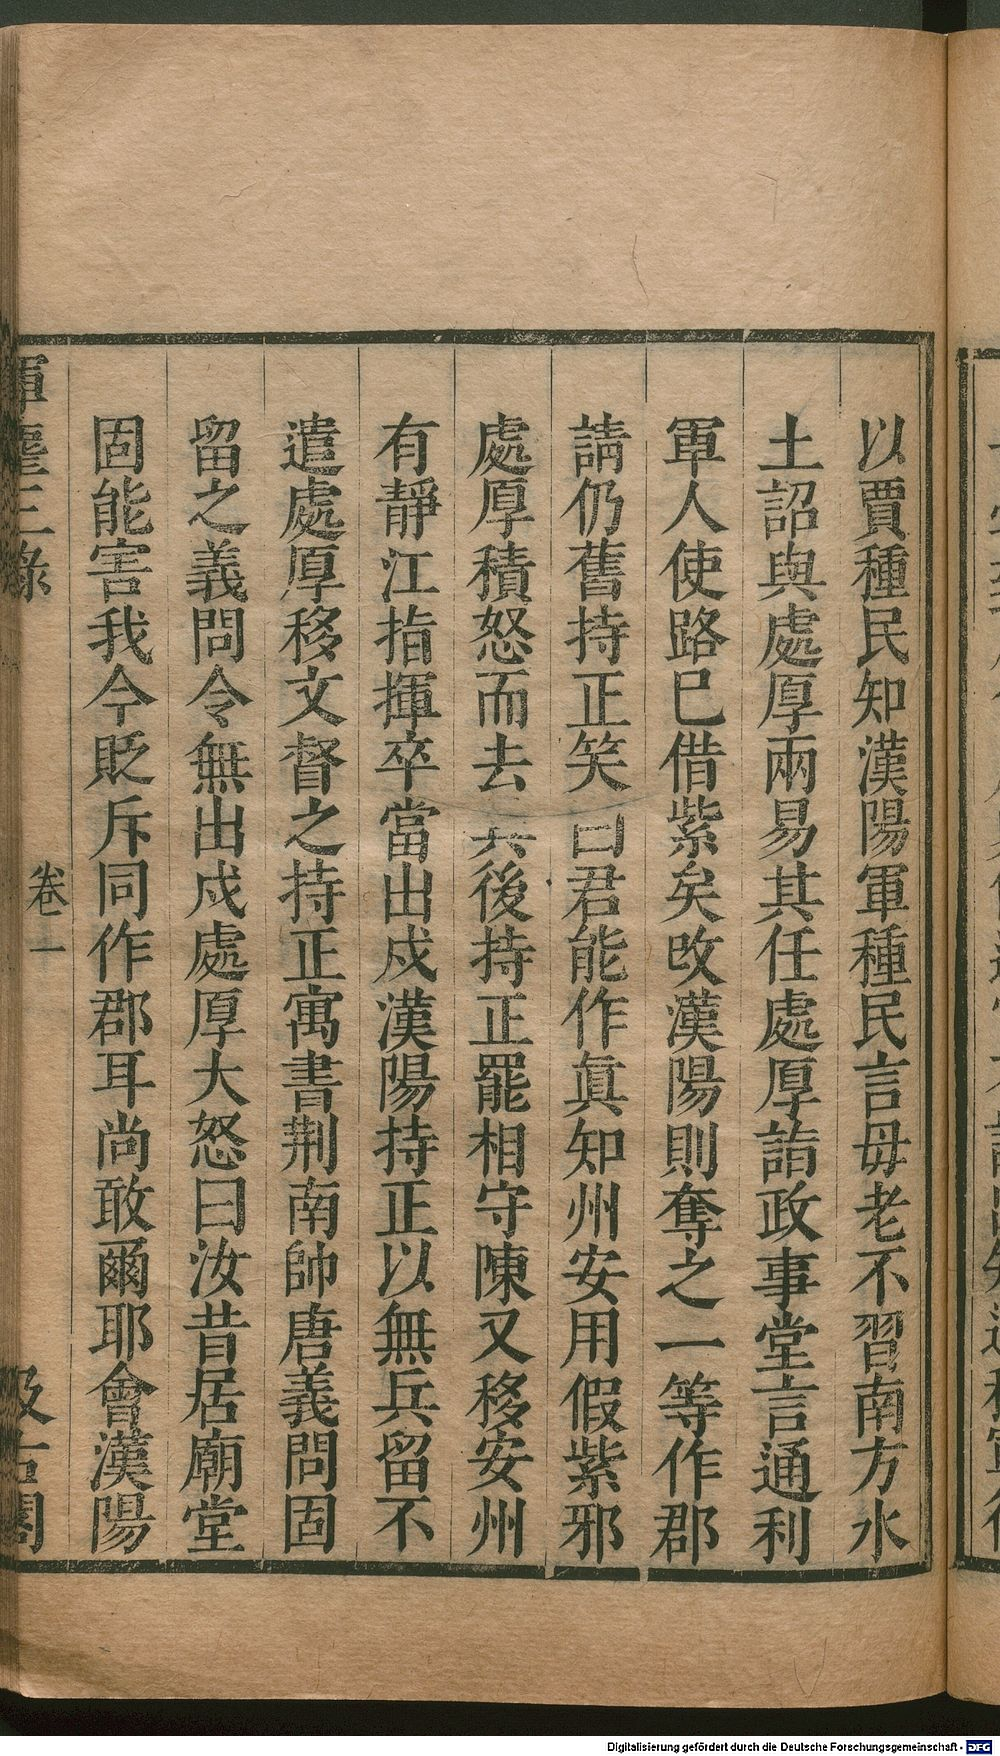 以賈種民知漢陽軍種民言毋老不習南方水
土詔與處厚兩易其任處厚詣政事堂言通利
軍人使路已借紫矣改漢陽則奪之一等作郡
請仍舊持正笑曰君能作眞知州安用假紫邪
處厚積怒而去其後持正罷相守陳又移安州
有靜江指揮卒當出戍漢陽持正以無兵留不
遣處厚移文督之持正寓書荆南帥唐義問固
留之義問令無出戍處厚大怒曰汝昔居廟堂
固能害我今貶斥同作郡耳尚敢爾耶會漢陽
揮麈三錄
卷一
汲古閣
Digitalisierung gefördert durch die Deutsche Forschungsgemeinschaft - DFG